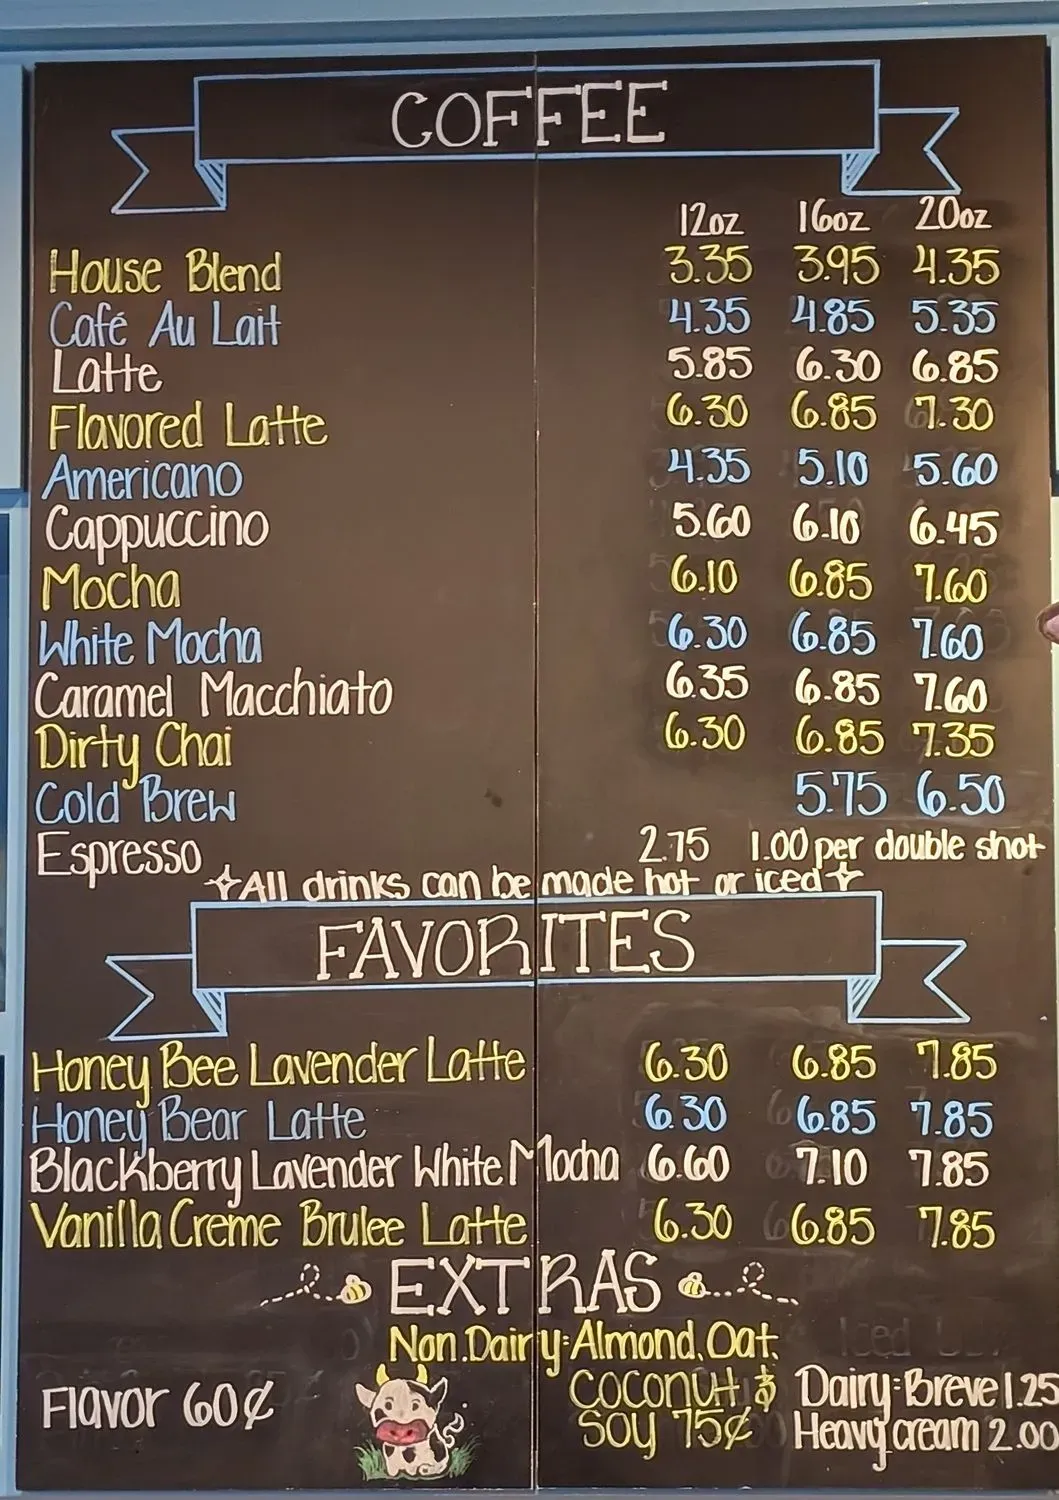 COFFEE
12oz 16oz 20oz
House Blend 3.35 3.95 4.35
Café Au Lait 4.35 4.85 5.35
Latte 5.85 6.30 6.85
Flavored Latte 6.30 6.85 7.30
Americano 4.35 5.10 5.60
Cappuccino 5.60 6.10 6.45
Mocha 6.10 6.85 7.60
White Mocha 6.30 6.85 7.60
Caramel Macchiato 6.35 6.85 7.60
Dirty Chai 6.30 6.85 7.35
Cold Brew 5.75 6.50
Espresso 2.75 1.00 per double shot
All drinks can be made hot or iced
FAVORITES
Honey Bee Lavender Latte 6.30 6.85 7.85
Honey Bear Latte 6.30 6.85 7.85
Blackberry Lavender White Mocha 6.60 7.10 7.85
Vanilla Creme Brulee Latte 6.30 6.85 7.85
EXTRAS
Flavor 60¢
Non.Dairy:Almond.Oat.
Coconut &
Soy 75¢
Dairy:Breve 1.25
Heavy cream 2.00